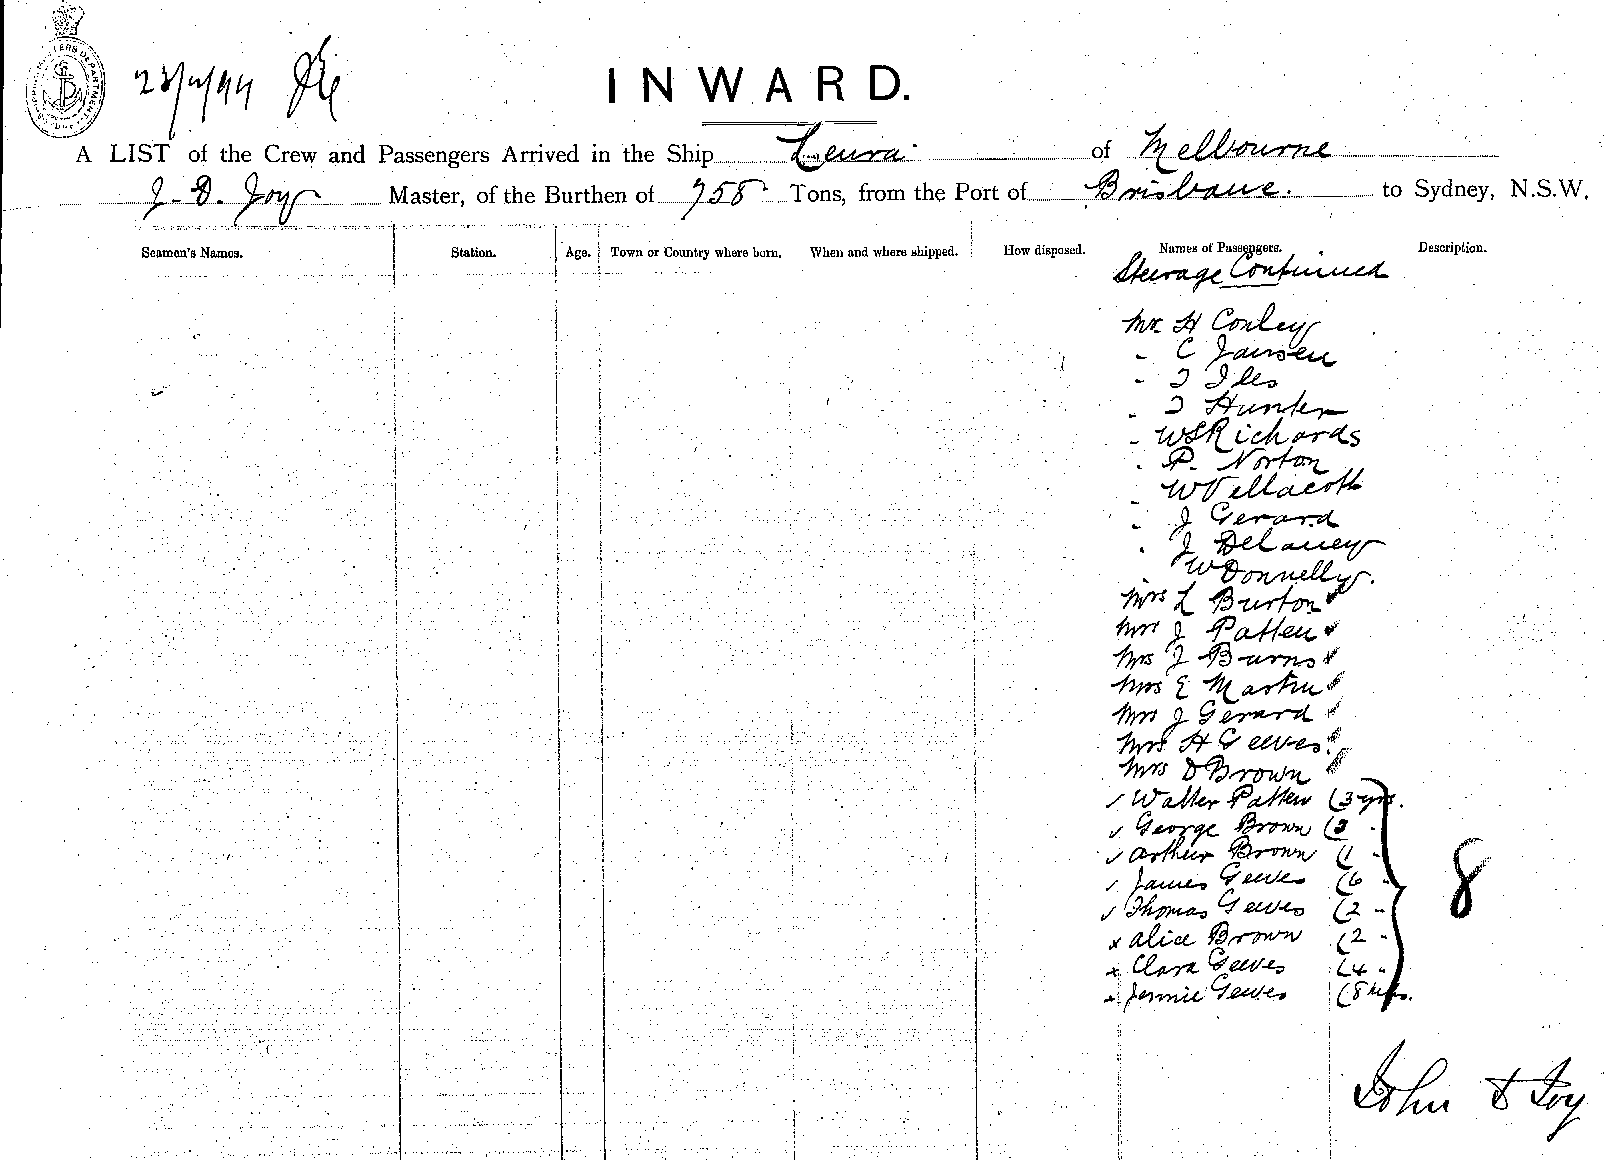 23/4/94
INWARD.
A LIST of the Crew and Passengers Arrived in the Ship Leura of Melbourne
J. D. Joy Master, of the Burthen of 758 Tons, from the Port of Brisbane. to Sydney, N.S.W.
Seamen's Names. Station. Age. Town or Country where born. When and where shipped. How disposed. Names of Passengers. Description.
Steerage Continued
Mr. H Conley
" C Jansen
" J Iles
" J Hunter
" W S Richards
" P. Norton
" W Vellacott
" J Gerard
" J Delaney
W Donnelly.
Mrs L Burton
Mrs J Patten
Mrs J Burns
Mrs E Martin
Mrs J Gerard
Mrs H Geeves
Mrs D Brown
✓ Walter Patten (3 yrs.
✓ George Brown (3 "
✓ Arthur Brown (1 "
✓ James Geeves (6 "
✓ Thomas Geeves (2 "
x Alice Brown (2 "
x Clara Geeves (4 "
x Jennie Geeves (8 mos.
8
John D Joy